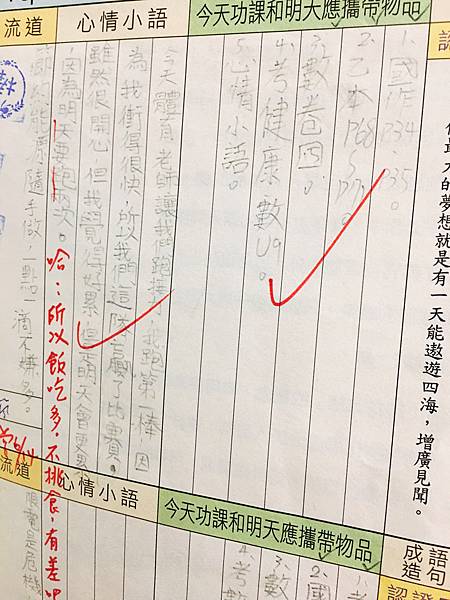 認
大的夢想就是有一天能遨遊四海，增廣見聞。
今天功課和明天應攜帶物品
1、國作P34、P35。
2、乙本P68~P71。
3、數卷四。
4、考健康、數U9。
5、心情小語。
心情小語
今天體育老師讓我們跑接力，我跑第一棒，因
為我衝得很快，所以我們這隊贏了比賽。
雖然很開心，但我覺得好累，但是明天會更累
，因為明天要跑兩次。
哈：所以飯吃多，不挑食，有差
流道
節約能源隨手做，一點一滴不嫌多。
成語
造句
認證
今天功課和明天應攜帶物品
心情小語
流道